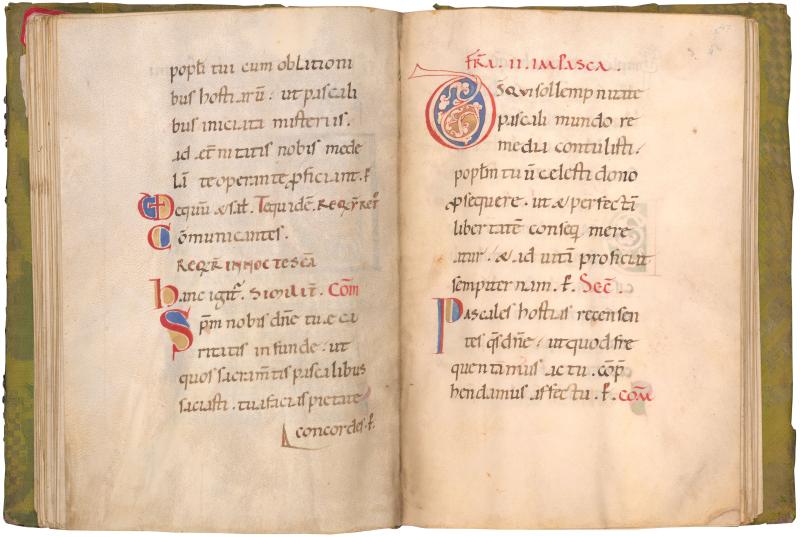 popli tui cum oblationi
bus hostiarū. ut pascali
bus iniciata misteriis.
ad etnitatis nobis mede
lā te operante ꝑficiant. ꝑ
equū & sal. Te quidē. REQR RET
Cōmunicantes.
REQR IN NOCTE SCA
hanc igitr. Similit. Com
Spm nobis dne tu.e ca
ritatis infunde. ut
quos sacramtis pascalibus
saciasti. tua facias pietate
concordes. ꝑ
FRA. II. IN PASCA.
Ds qui sollempnitate
pascali mundo re
media contulisti.
poplm tuū celesti dono
ꝓsequere. ut & perfectā
libertatē conseq mere
atur. & ad uitā proficiat
sempiternam. ꝑ. Sec.
Pascales hostias recensen
tes qs dne. ut quod fre
quentamus actu. cōp
hendamus affectu. ꝑ. com